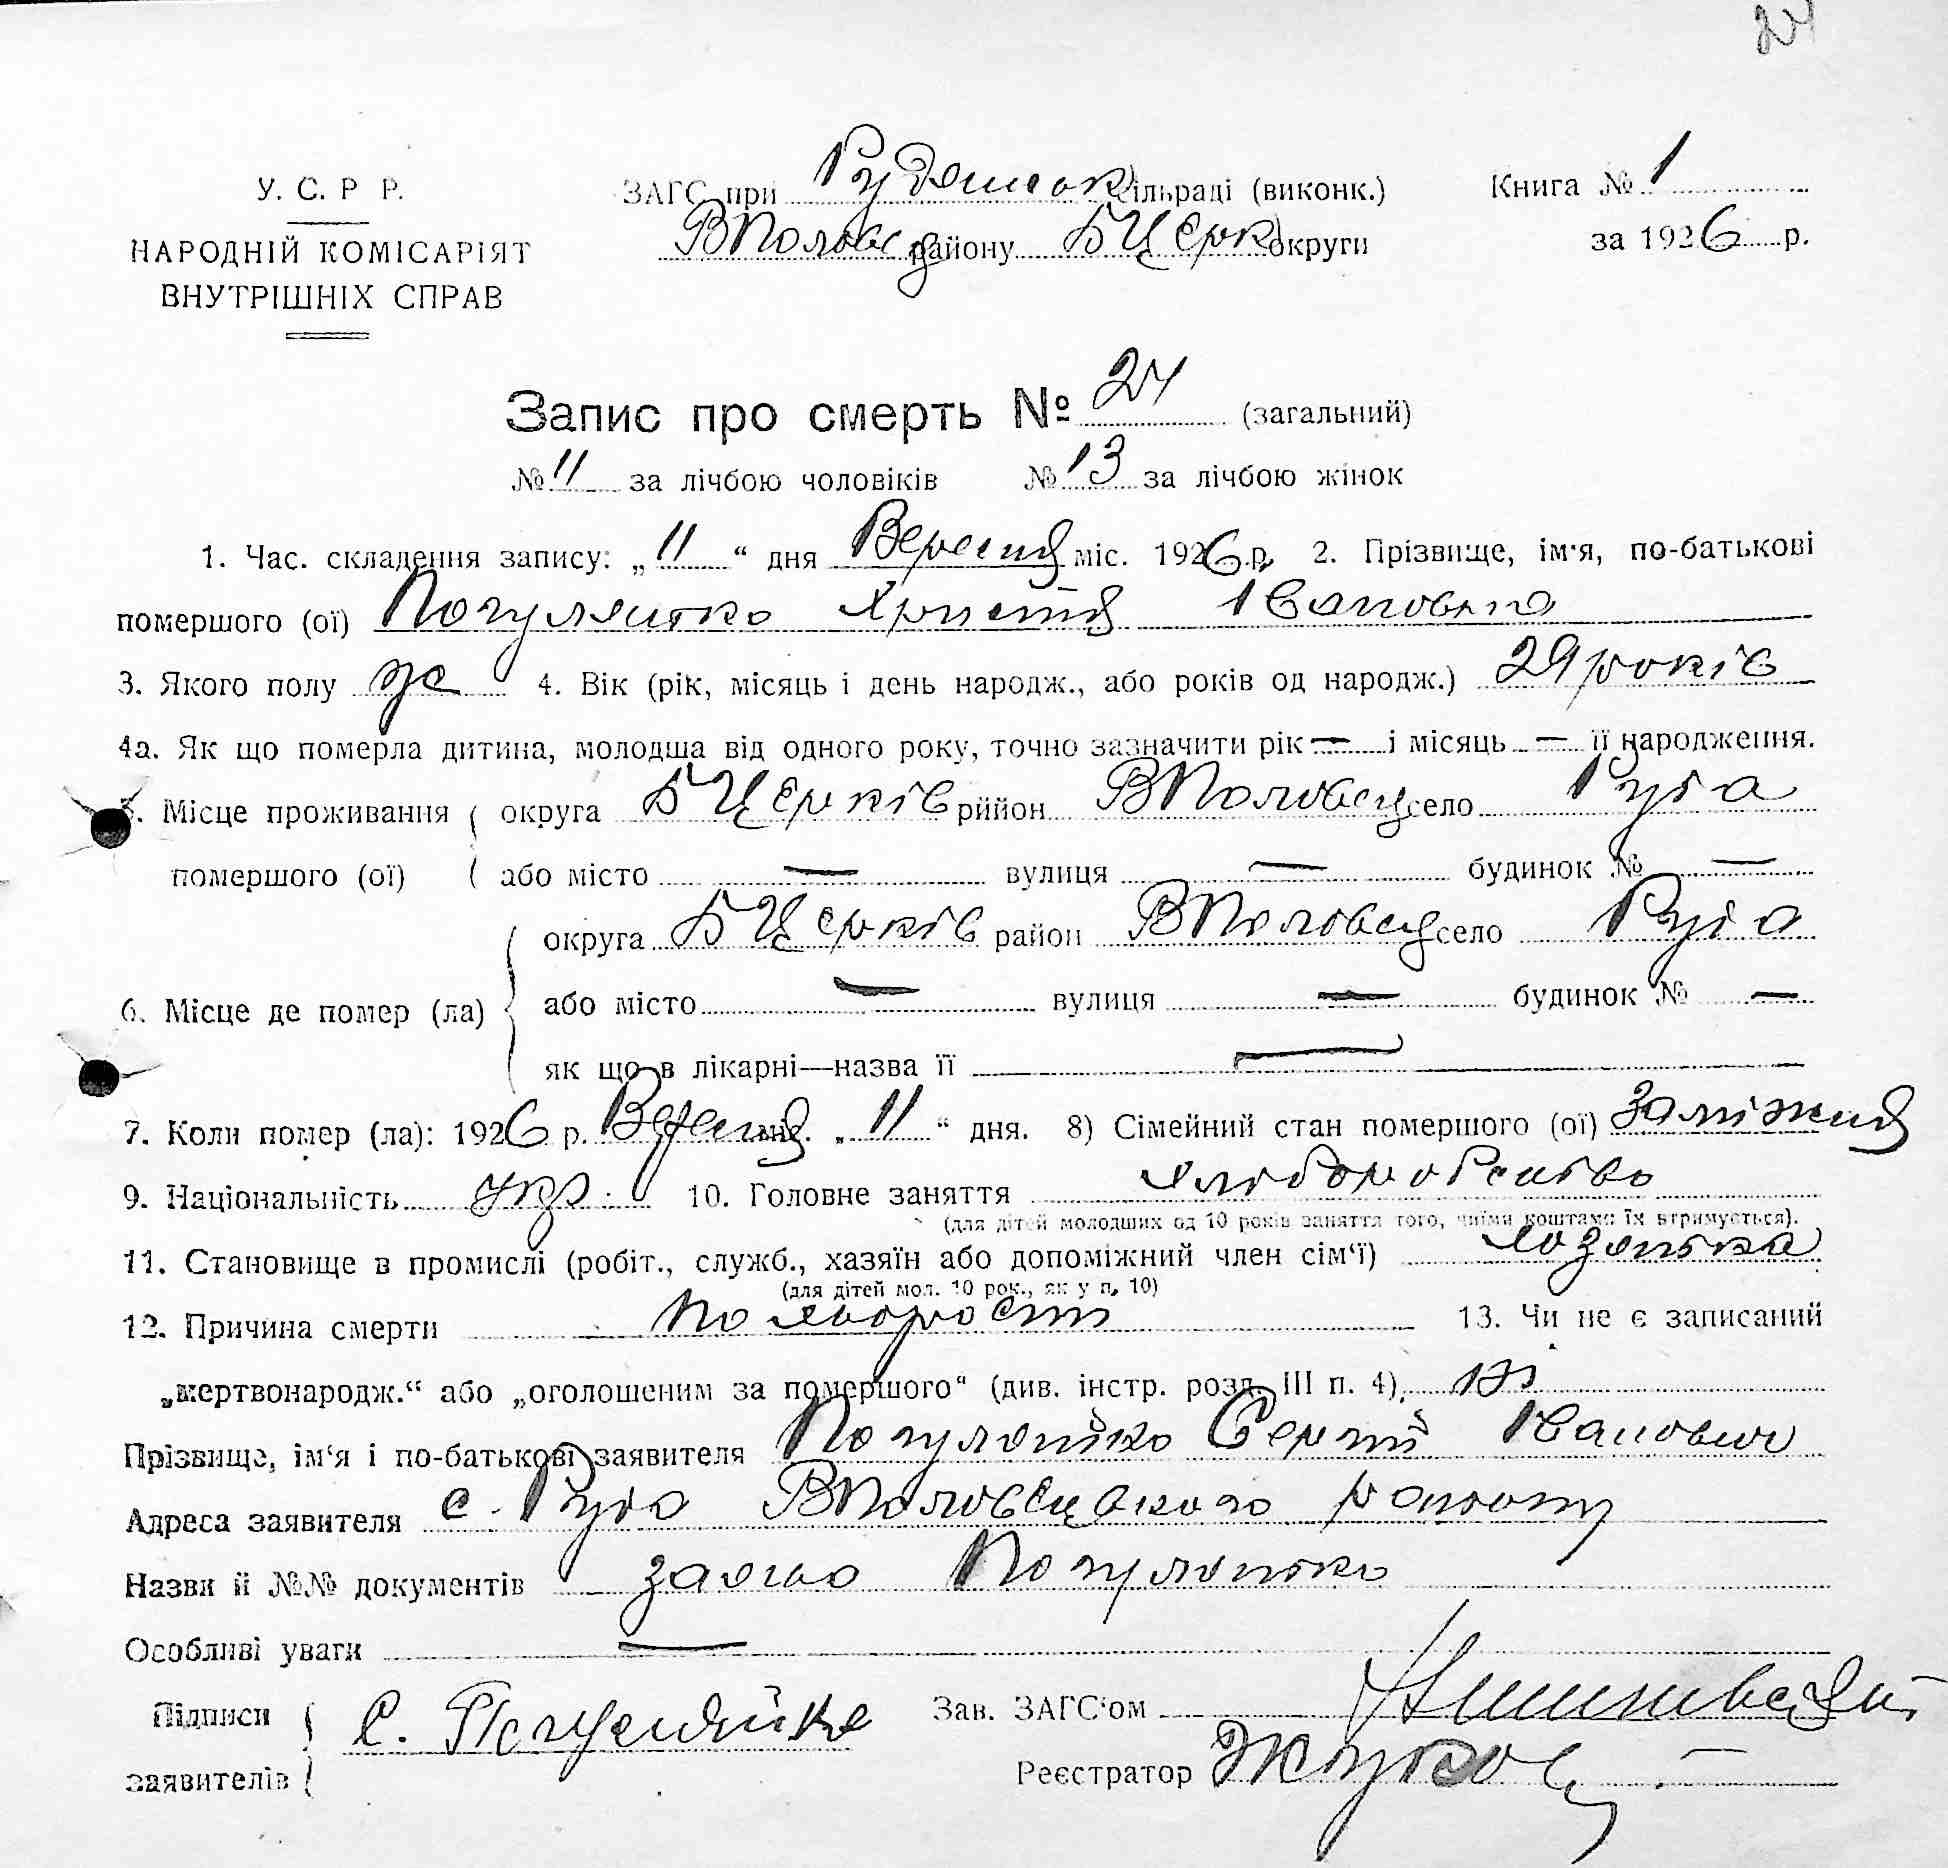 24
У. С. Р Р.
НАРОДНІЙ КОМІСАРІЯТ
ВНУТРІШНІХ СПРАВ
ЗАГС при Рудянськ сільраді (виконк.)
ВПоловец району БЦерк округи
Книга № 1
за 1926 р.
Запис про смерть № 24 (загальний)
№ 11 за лічбою чоловіків № 13 за лічбою жінок
1. Час. складення запису: „11“ дня Вересня міс. 1926 р. 2. Прізвище, ім'я, по-батькові
помершого (ої) Погуляйко Христя Івановна
3. Якого полу ж 4. Вік (рік, місяць і день народж., або років од народж.) 29 років
4а. Як що померла дитина, молодша від одного року, точно зазначити рік — і місяць — її народження.
5. Місце проживання { округа БЦерків рййон ВПоловец село Руда
помершого (ої) ( або місто — вулиця — будинок № —
округа БЦерків район ВПоловец село Руда
6. Місце де помер (ла) { або місто — вулиця — будинок № —
як що в лікарні—назва її —
7. Коли помер (ла): 1926 р. Вересня міс. „11“ дня. 8) Сімейний стан помершого (ої) Заміжня
9. Національність укр. 10. Головне заняття Хліборобство
(для дітей молодших од 10 років заняття того, чиїми коштами їх втримується).
11. Становище в промислі (робіт., служб., хазяїн або допоміжний член сім'ї) хозяйка
(для дітей мол. 10 рок., як у п. 10)
12. Причина смерти по хворости 13. Чи не є записаний
„мертвонародж.“ або „оголошеним за помершого“ (див. інстр. розд. III п. 4). ні
Прізвище, ім'я і по-батькові заявителя Погуляйко Сергій Іванович
Адреса заявителя с. Руда ВПоловецького району
Назви й №№ документів заява Погуляйко
Особливі уваги —
Підписи { С. Погуляйко Зав. ЗАГС'ом
заявителів ( Реєстратор